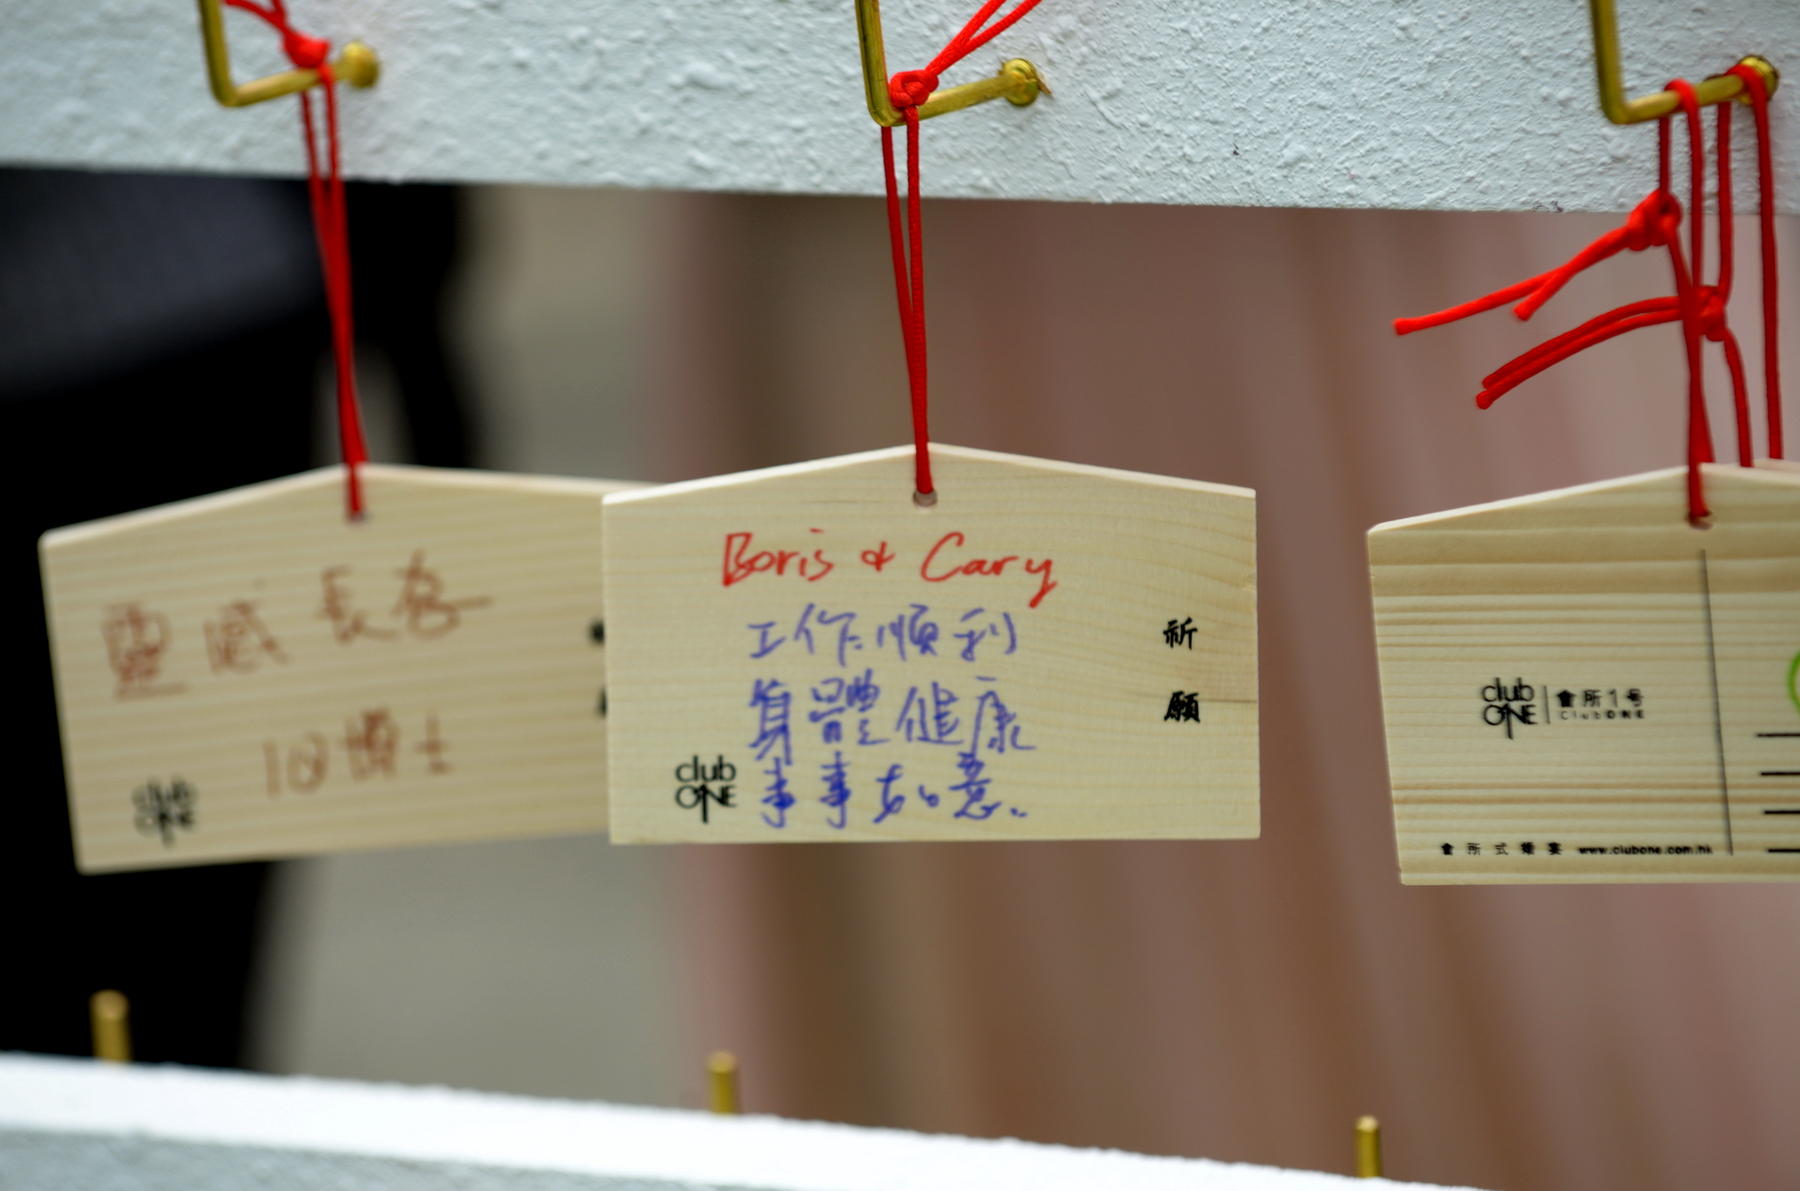 靈感長存
10博士
club
ONE
Boris & Cary
工作順利
身體健康
事事如意.
祈
願
club
ONE
club
ONE
會所1号
ClubONE
會所式婚宴 www.clubone.com.hk